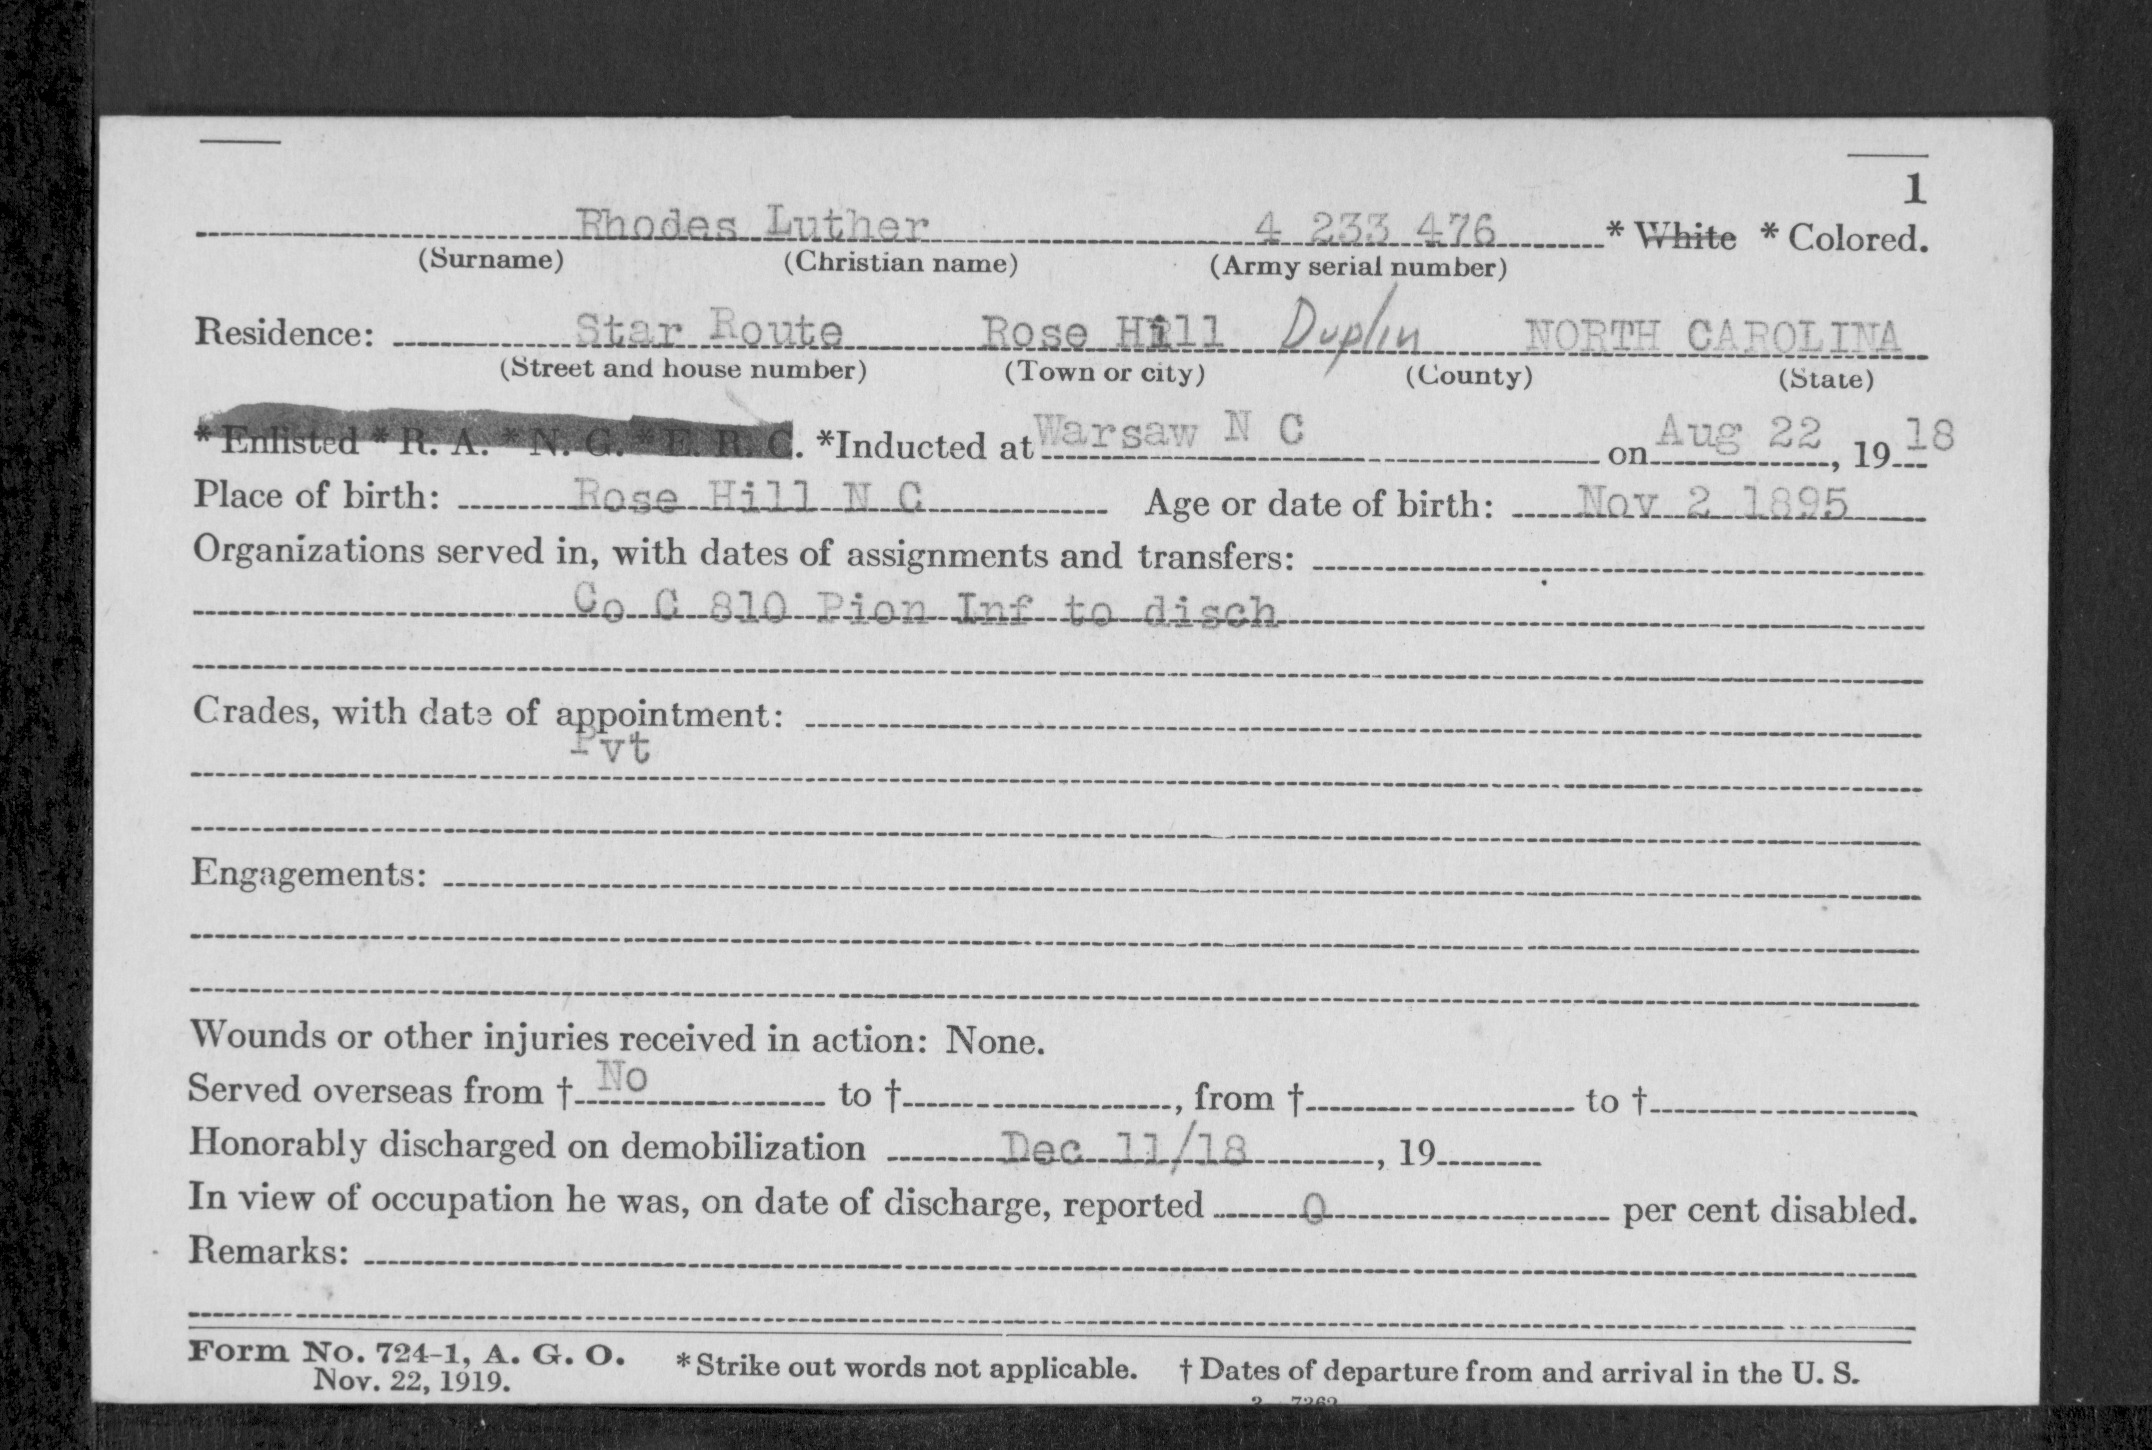 1
Rhodes Luther 4 233 476 * White * Colored.
(Surname) (Christian name) (Army serial number)
Residence: Star Route Rose Hill Duplin NORTH CAROLINA
(Street and house number) (Town or city) (County) (State)
* Enlisted * R. A. * N. G. * E. R. C. *Inducted at Warsaw N C on Aug 22, 19 18
Place of birth: Rose Hill N C Age or date of birth: Nov 2 1895
Organizations served in, with dates of assignments and transfers:
Co C 810 Pion Inf to disch
Grades, with date of appointment:
Pvt
Engagements:
Wounds or other injuries received in action: None.
Served overseas from † No to †, from † to †
Honorably discharged on demobilization Dec 11/18, 19
In view of occupation he was, on date of discharge, reported 0 per cent disabled.
Remarks:
Form No. 724-1, A. G. O. * Strike out words not applicable. † Dates of departure from and arrival in the U. S.
Nov. 22, 1919.